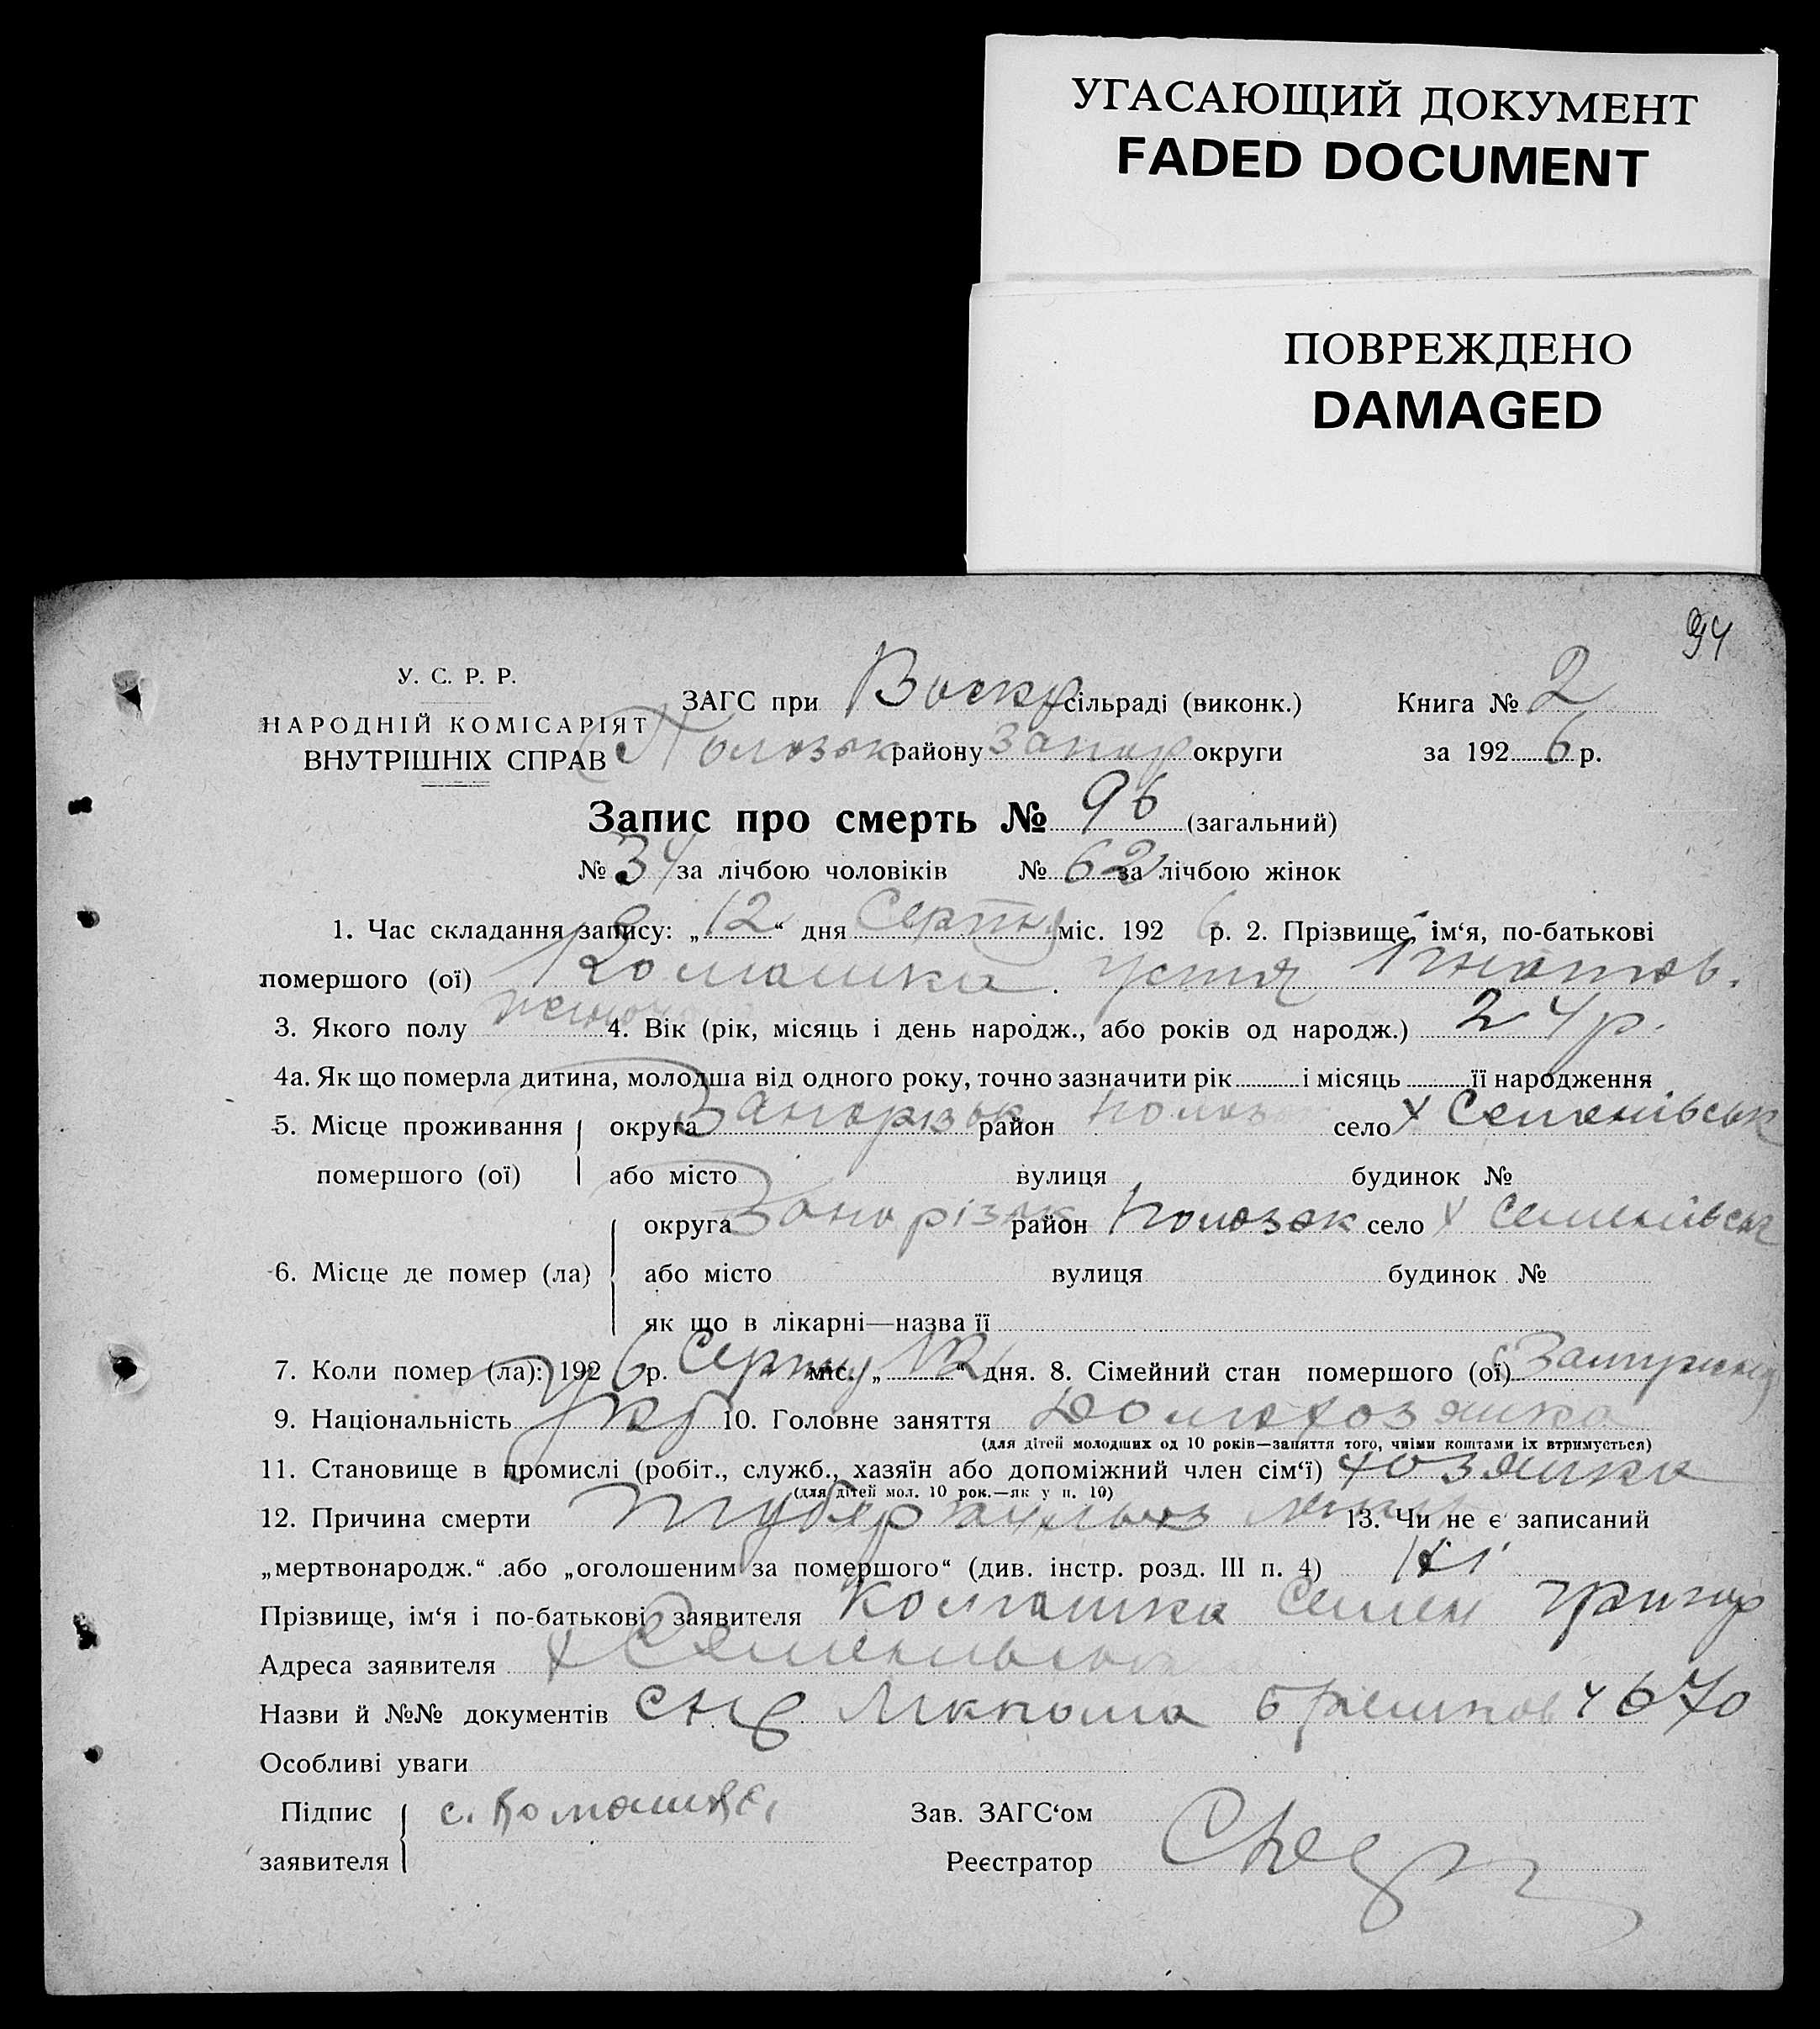 УГАСАЮЩИЙ ДОКУМЕНТ
FADED DOCUMENT
ПОВРЕЖДЕНО
DAMAGED
94
У. С. Р. Р.
НАРОДНІЙ КОМІСАРІЯТ
ВНУТРІШНІХ СПРАВ
ЗАГС при Воскр сільраді (виконк.) Книга № 2
Пологзьк району Запор округи за 192 6 р.
Запис про смерть № 96 (загальний)
№ 34 за лічбою чоловіків № 62 за лічбою жінок
1. Час складання запису: „ 12 “ дня Серпня міс. 192 6 р. 2. Прізвище, ім‘я, по-батькові
помершого (ої) Комашка Устя Ігнатов.
3. Якого полу жіноч 4. Вік (рік, місяць і день народж., або років од народж.) 24 р.
4а. Як що померла дитина, молодша від одного року, точно зазначити рік і місяць її народження
5. Місце проживання помершого (ої) округа Запорізьк район село х Семенівськ
або місто вулиця будинок №
6. Місце де помер (ла) округа Запорізьк район село х Семенівськ
або місто вулиця будинок №
як що в лікарні—назва її
7. Коли помер (ла): 192 6 р. Серпн міс. „ 12 “ дня. 8. Сімейний стан помершого (ої) Замужня
9. Національність Укр 10. Головне заняття Домохозяйка
(для дітей молодших од 10 років—заняття того, чиїми коштами їх втримується)
11. Становище в промислі (робіт., служб., хазяїн або допоміжний член сім‘ї) хозяйка
(для дітей мол. 10 рок.—як у п. 10)
12. Причина смерти туберкульоз легк 13. Чи не є записаний
„мертвонародж.“ або „оголошеним за помершого“ (див. інстр. розд. III п. 4) Ні
Прізвище, ім‘я і по-батькові заявителя Комашка Семен Григор
Адреса заявителя х Семенівськ
Назви й №№ документів
Особливі уваги
Підпис заявителя с. Комашка Зав. ЗАГС‘ом
Реєстратор